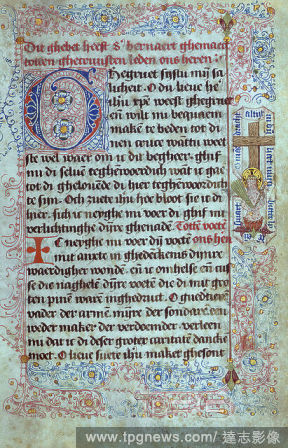 Dit ghebet heeft S' bernaert ghemaect
totten ghecruusten leden ons heren
Ghegruet sijstu mijn sa
licheit. O du lieue he
ihu xpe weest ghegruet
en wilt mi bequaem
maken te beden tot di
nen cruce wattu weet
ste wel waer om ic dit begheer. ghif
mi di selue teghenwoerdich want ic gae
tot di ghelouede di hier teghenwoordich
te sijn. Och zuete ihu hoe bloot sie ic di
hier. sich ic neyghe mi voer di ghif om
verlichtinghe dijnre ghenade. Totten voeten
Ic neyghe mi voer dijn voeten ons heren
mit anxte in ghedeckenis dijnre
waerdigher wonde. en ic omhelse en cus
se die naghele dijnre voete die di mit gro
ten pine waren inghedruct. O guedertieren
vader der armen mijnre der sondaren een
weder maker der verdoemder. verleen
mi dat ic di deser groter caritaten dancke
moet. O lieue suete ihu maket ghesont
www.tpgnews.com/達志影像